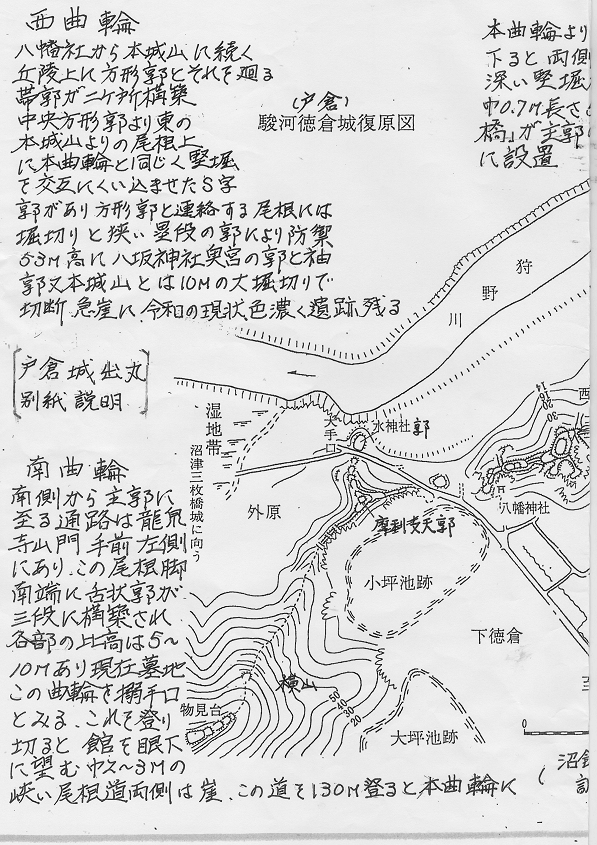 西曲輪
八幡社から本城山に続く
丘陵上に方形郭とそれを廻る
帯郭がニケ所構築
中央方形郭より東の
本城山よりの尾根上
に本曲輪と同じく竪堀
を交互にくい込ませたS字
郭があり方形郭と連絡する尾根には
堀切りと狭い塁段の郭により防禦
53M高に八坂神社奥宮の郭と袖
郭文本城山とは10Mの大堀切りで
切断 急崖に、令和の現状、色濃く遺跡残る
本曲輪より
下ると両側
深い竪堀
巾0.7M長さ
橋」が主郭
に設置
(戸倉)
駿河徳倉城復原図
狩
野
川
戸倉城出丸
別紙説明
湿地帯
沼津三枚橋城に向う
大手口
水神社郭
外原
摩利支天郭
八幡神社
小坪池跡
下徳倉
横山
物見台
大坪池跡
14
20
30
50
40
30
20
西
至
0
南曲輪
南側から主郭に
至る通路は龍泉
寺山門手前左側
にあり、この尾根脚
南端に舌状郭が
三段に構築され
各部の比高は5〜
10Mあり現在墓地
この曲輪を搦手口
とみる、これを登り
切ると館を眼下
に望む巾2〜3Mの
峡い尾根道両側は崖、この道を130M登ると本曲輪に
(沼